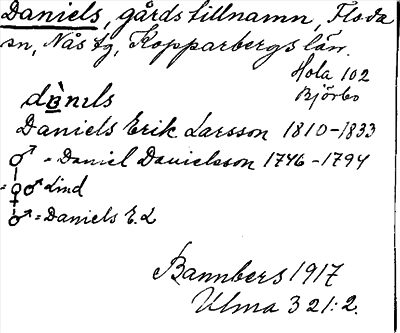 Daniels, gårdstillnamn, Floda
sn, Nås tg, Kopparbergs län.
Hola 102
Björbo
dànιls
Daniels Erik Larsson 1810-1833
♂ = Daniel Danielsson 1746-1794
♀♂ Lind
♂ = Daniels E. L
Bannbers 1917
Ulma 321:2.